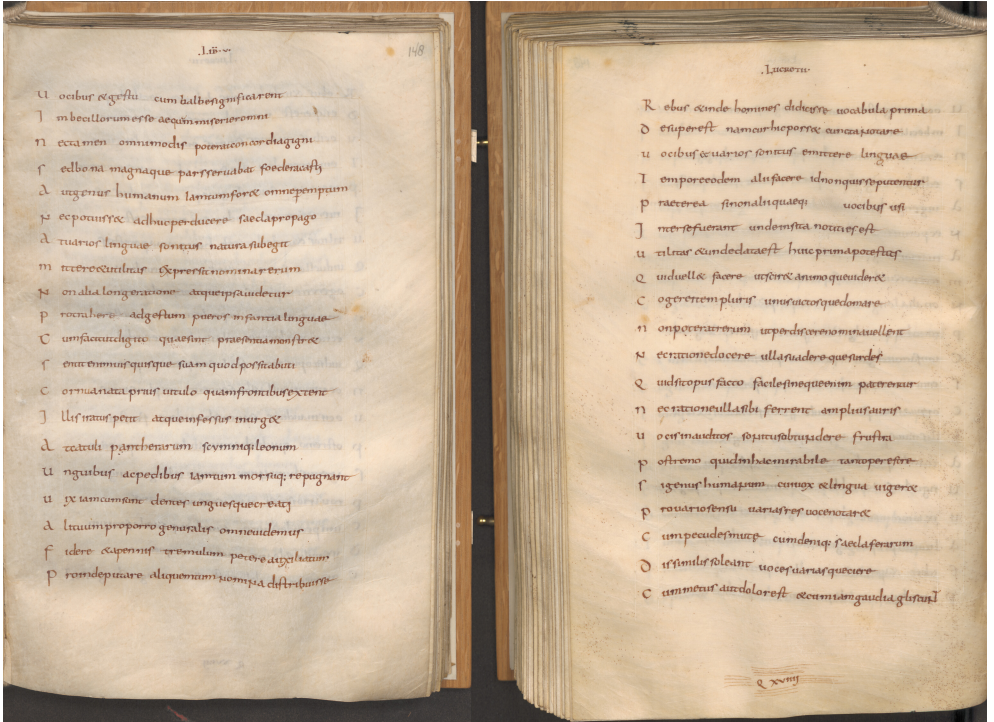 .Lib. v.
148
Uocibus & gestu cum balbe significarent
Imbecillorum esse aequm miserier omni
Nec tamen omnimodis poterat concordia gigni
Sed bona magnaque pars servabat foedera casti
Aut genus humanum iam tum for& omne peremptum
Nec potuiss& adhuc perducere saecla propago
At varios linguae sonitus natura subegit
Mittere & utilitas expressit nomina rerum
Non alia longe ratione atque ipsa videtur
Protrahere ad gestum pueros infantia linguae
Cum facit ut digito quae sint praesentia monstr&
Sentit enim uis quisque suam quod possit abuti
Cornua nata prius uitulo quam frontibus extent
Illis iratus petit atque infessus inurg&
At catuli pantherarum scymniqileonum
Unguibus ac pedibus iam tum morsuq; repugnant
Uix iam cum sunt dentes unguesque creati
Alituum proporro genus alis omne uidemus
Fidere & apennis tremulum petere auxiliatum
Proinde putare aliquem tum nomina distribuisse
.Lucretii.
Rebus & inde homines didicisse uocabula prima
Desuperest nam cur hic poss& cuncta notare
Uocibus & uarios sonitus emittere linguae
Tempore eodem alii facere id non quisse putentur
Praeterea si non alii quaeq; uocibus usi
Inter se fuerant unde insita notities est
Utilitas & unde data est huic prima potestas
Quid uell& facere ut scir& animoque uider&
Cogere item pluris unus uictosque domare
Non poterat rerum ut perdiscere nomina uellent
Nec ratione docere ulla suadereque surdis
Quid sit opus facto faciles inque enim paterentur
Nec ratione ulla sibi ferrent amplius auris
Uocis inauditos sonitus obtundere frustra
Postremo quid in hac mirabile tantoperest re
Si genus humanum cui uox & lingua uiger&
Pro uario sensu uarias res uoce notar&
Cum pecudes mute cum deniq; saecla ferarum
Dissimilis soleant uoces uariasque ciere
Cum metus aut dolor est & cum iam gaudia gliscunt
Q xviiii